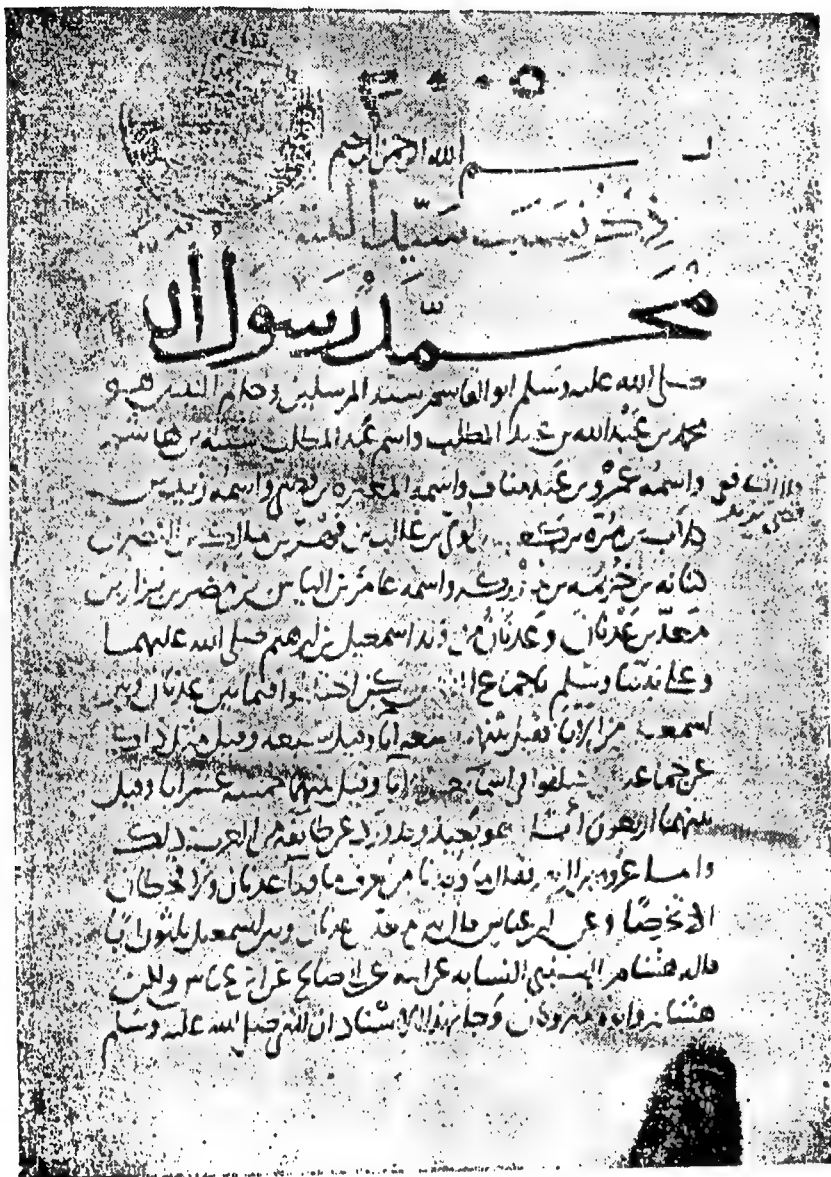 بسم الله الرحمن الرحيم
ذكر نسب سيد البشر
محمد رسول الله
صلى الله عليه وسلم ابو القاسم سيد المرسلين وخاتم النبيين هو
محمد بن عبد الله بن عبد المطلب واسم عبد المطلب شيبه بن هاشم
واسمه عمرو بن عبد مناف واسمه المغيره بن قصي واسمه زيد بن
كلاب بن مره بن كعب لوي بن غالب بن فهر بن مالك بن النضر بن
كنانه بن خزيمه بن مدركه واسمه عامر بن الياس بن مضر بن نزار بن
معد بن عدنان وعدنان من ولد اسمعيل بن ابرهيم صلى الله عليهما
وعلى نبينا وسلم باجماع الناس لكن اختلفوا فيما بين عدنان وبين
اسمعيل من الابا فقيل بينهما تسعه ابا وقيل سبعه وقيل مثل ذلك
عن جماعه اختلفوا في اسما الابا وقيل بينهما خمسه عشر ابا وقيل
بينهما اربعون ابا وهو بعيد وقد ورد عن طايفه من العرب ذلك
واما عروه بن الزبير فقال ما وجدنا من يعرف ما ورا عدنان ولا قحطان
الا تخرصا وعن ابن عباس قال بين معد بن عدنان وبين اسمعيل ثلثون ابا
قاله هشام بن الكلبي النسابه عن ابيه عن ابي صالح عن ابن عباس ولكن
هشام وابوه متروكان وجا بهذا الاسناد ان النبي صلى الله عليه وسلم